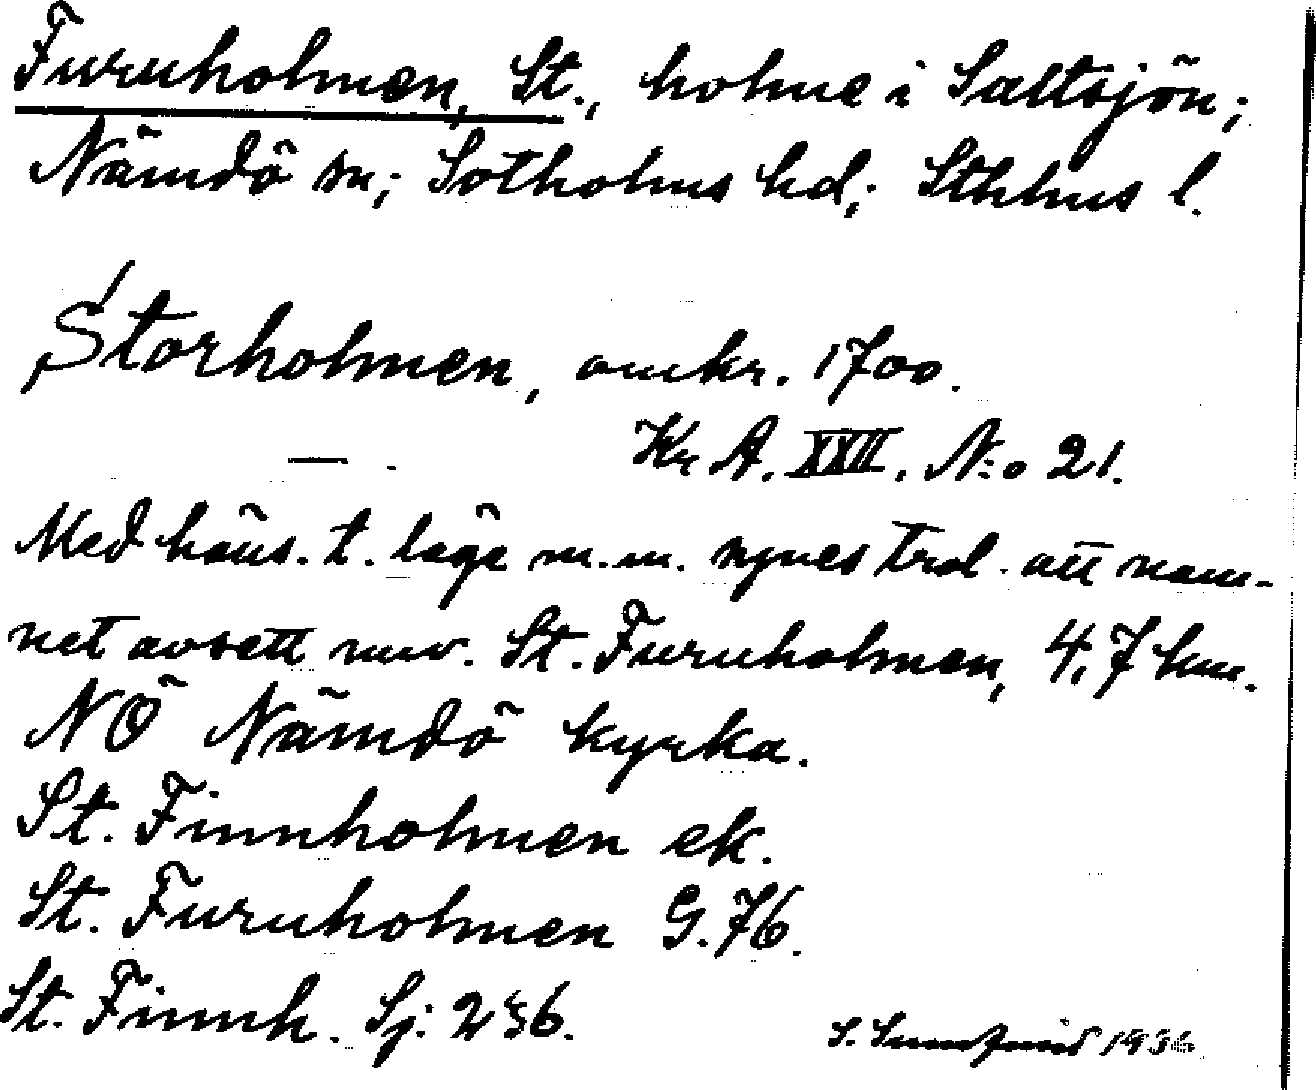 Furuholmen, St., holme i Saltsjön;
Nämdö sn; Sotholms hd; Sthlms l.
Storholmen, omkr. 1700.
Kr. A. XXII. N:o 21.
Med häns. t. läge m.m. synes trol. att nam-
net avsett nuv. St. Furuholmen, 4,7 km.
NÖ Nämdö kyrka.
St. Finnholmen ek.
St. Furuholmen G. 76.
St. Finnh. Sj: 236.
S. 1936